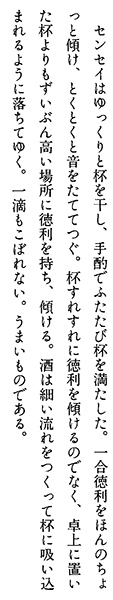 センセイはゆっくりと杯を干し、手酌でふたたび杯を満たした。一合徳利をほんのちょ
っと傾け、とくとくと音をたててつぐ。杯すれすれに徳利を傾けるのでなく、卓上に置い
た杯よりもずいぶん高い場所に徳利を持ち、傾ける。酒は細い流れをつくって杯に吸い込
まれるように落ちてゆく。一滴もこぼれない。うまいものである。